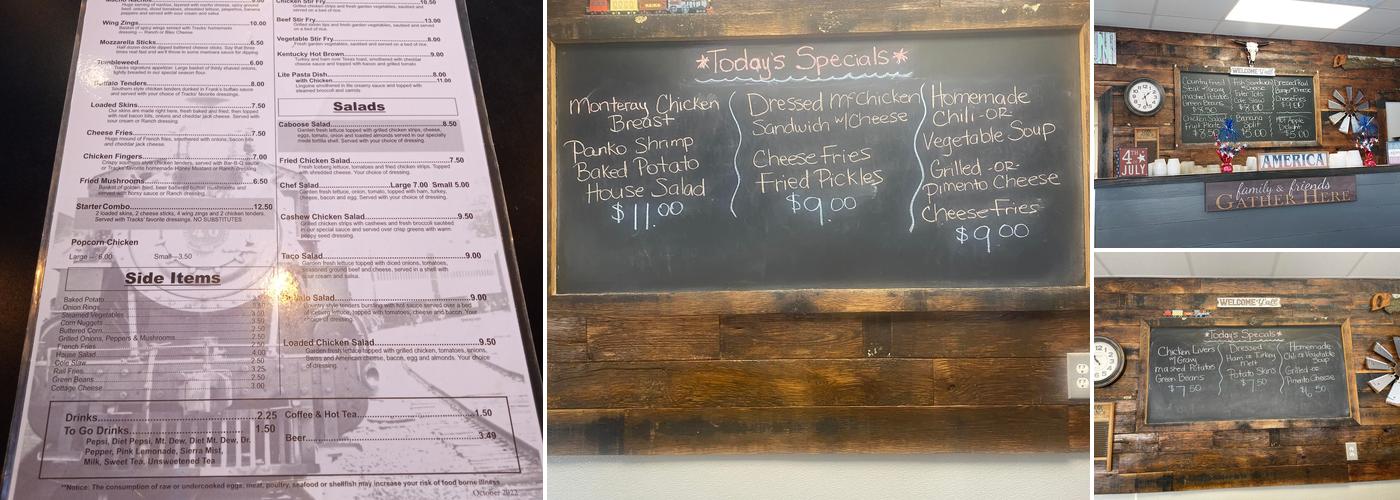 Wing Zings 10.00
Basket of spicy wings served with Tracks' homemade
dressing — Ranch or Bleu Cheese.
Mozzarella Sticks 6.50
Half dozen double dipped battered cheese sticks. Say that three
times real fast and we'll throw in some marinara sauce for dipping
Tumbleweed 6.00
Tracks signature appetizer. Large basket of thinly shaved onions,
lightly breaded in our special season flour.
Buffalo Tenders 8.00
Southern style chicken tenders dunked in Frank's buffalo sauce
and served with your choice of Tracks' favorite dressings.
Loaded Skins 7.50
Our skins are made right here, fresh baked and fried, then topped
with real bacon bits, onions and cheddar jack cheese. Served with
sour cream or Ranch dressing.
Cheese Fries 7.50
Huge mound of French fries, smothered with onions, bacon bits,
and cheddar jack cheese.
Chicken Fingers 7.00
Crispy southern style chicken tenders, served with Bar-B-Q sauce
or Tracks favorite homemade Honey Mustard or Ranch dressing.
Fried Mushrooms 6.50
Basket of golden fried, beer battered button mushrooms and
served with horsy sauce or Ranch dressing.
Starter Combo 12.50
2 loaded skins, 2 cheese sticks, 4 wing zings and 2 chicken tenders.
Served with Tracks' favorite dressings. NO SUBSTITUTES
Popcorn Chicken
Large – 6.00 Small—3.50
Side Items
Baked Potato
Onion Rings
Steamed Vegetables 3.00
Corn Nuggets 3.50
Buttered Corn 2.50
Grilled Onions, Peppers & Mushrooms 2.50
French Fries 2.50
House Salad 4.00
Cole Slaw 2.50
Rail Fries 3.25
Green Beans 2.50
Cottage Cheese 3.00
Chicken Stir Fry 10.50
Grilled chicken strips and fresh garden vegetables, sautéed and
served on a bed of rice.
Beef Stir Fry 13.00
Grilled sirloin tips and fresh garden vegetables, sautéed and served
on a bed of rice.
Vegetable Stir Fry 8.00
Fresh garden vegetables, sautéed and served on a bed of rice.
Kentucky Hot Brown 9.00
Turkey and ham over Texas toast, smothered with cheddar
cheese sauce and topped with bacon and grilled tomato
Lite Pasta Dish 8.00
with Chicken 11.00
Linguine smothered in lite creamy sauce and topped with
steamed broccoli and carrots
Salads
Caboose Salad 8.50
Garden fresh lettuce topped with grilled chicken strips, cheese,
eggs, tomato, onion and toasted almonds served in our specialty
made tortilla shell. Served with your choice of dressing.
Fried Chicken Salad 7.50
Fresh Iceberg lettuce, tomatoes and fried chicken strips. Topped
with shredded cheese. Your choice of dressing.
Chef Salad Large 7.00 Small 5.00
Garden fresh lettuce, onion, tomato, topped with ham, turkey,
cheese, bacon and egg. Served with your choice of dressing.
Cashew Chicken Salad 9.50
Grilled chicken strips with cashews and fresh broccoli sautéed
in our special sauce and served over crisp greens with warm
poppy seed dressing.
Taco Salad 9.00
Garden fresh lettuce topped with diced onions, tomatoes,
seasoned ground beef and cheese, served in a shell with
sour cream and salsa.
Buffalo Salad 9.00
Country style tenders bursting with hot sauce served over a bed
of iceberg lettuce, topped with tomatoes, cheese and bacon. Your
choice of dressing.
Loaded Chicken Salad 9.50
Garden fresh lettuce topped with grilled chicken, tomatoes, onions,
Swiss and American cheese, bacon, egg and almonds. Your choice
of dressing.
Drinks 2.25
To Go Drinks 1.50
Pepsi, Diet Pepsi, Mt. Dew, Diet Mt. Dew, Dr.
Pepper, Pink Lemonade, Sierra Mist,
Milk, Sweet Tea, Unsweetened Tea
Coffee & Hot Tea 1.50
Beer 3.49
**Notice: The consumption of raw or undercooked eggs, meat, poultry, seafood or shellfish may increase your risk of food borne illness
October 2022
*Today's Specials*
Monteray Chicken
Breast
Panko Shrimp
Baked Potato
House Salad
$11.00
Dressed McChicken
Sandwich w/Cheese
Cheese Fries
Fried Pickles
$9.00
Homemade
Chili -OR-
Vegetable Soup
Grilled -OR-
Pimento Cheese
Cheese Fries
$9.00
WELCOME Y'all
Country Fried
Steak w/Gravy
Mashed Potatoes
Green Beans
$8.50
Fish Sandwich
w/Cheese
Tater Tots
Cole Slaw
$8.00
Chicken Salad
Fruit Plate
Banana
Split
$5.00
Hot Apple
Delight
$5.00
4TH
JULY
AMERICA
family & friends
GATHER HERE
WELCOME Y'all
*Today's Specials*
Chicken Livers
w/ Gravy
mashed Potatoes
Green Beans
$7.50
Dressed
Ham or Turkey
Melt
Potato Skins
$7.50
Homemade
Chili or Vegetable
Soup
Grilled -or-
Pimento Cheese
$6.50